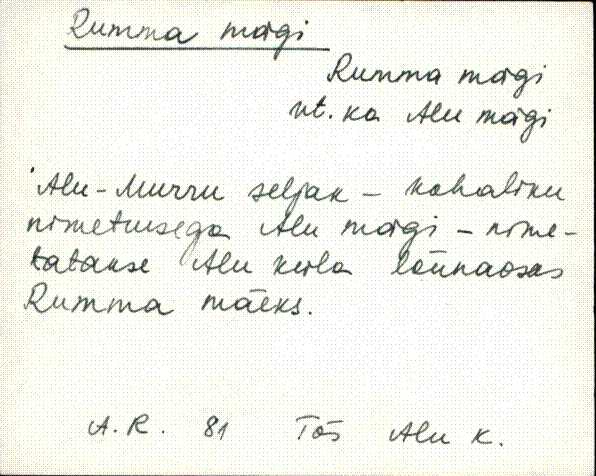 Rumma mägi
Rumma mägi
vt. ka Alu mägi
Alu-Murru seljak - kohaliku
nimetusega Alu mägi - nime-
tatakse Alu küla lõunaosas
Rumma mäeks.
A.R. 81 Tõs Alu k.